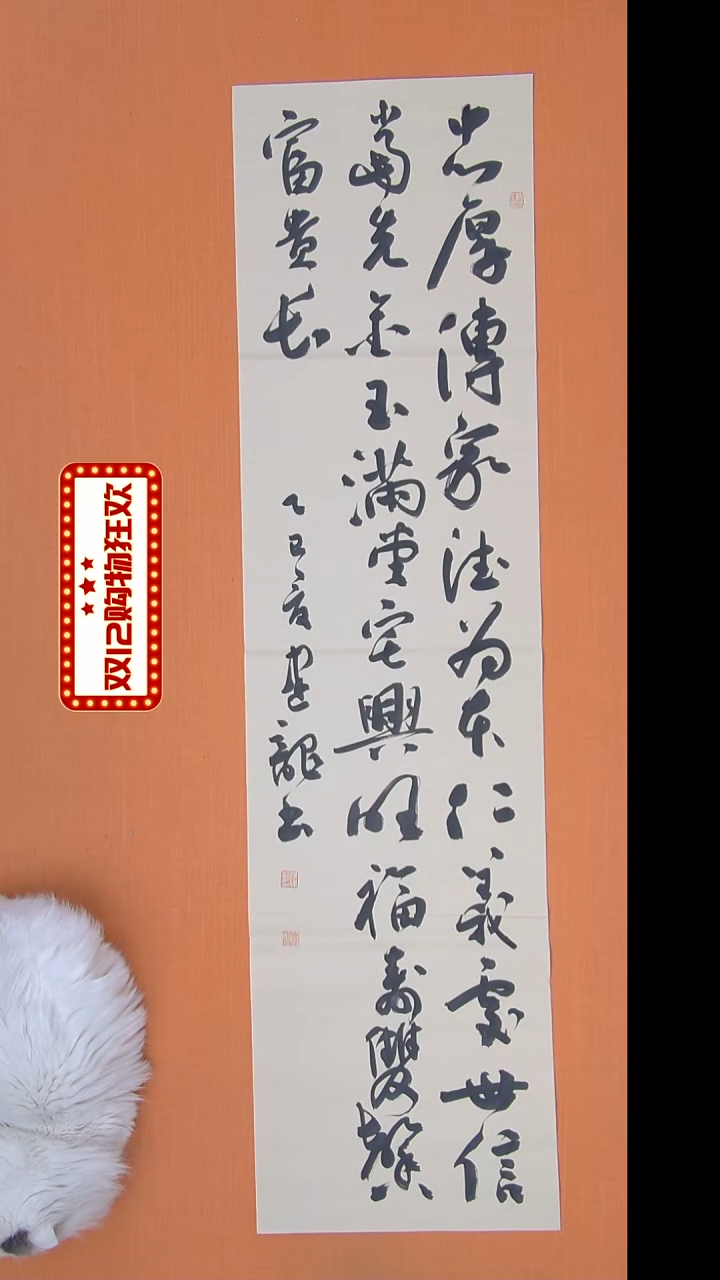 忠厚傳家德为本仁義處世信
當先金玉滿堂宅興旺福壽雙馨
富貴长
乙巳夏建龍书
双12购物狂欢